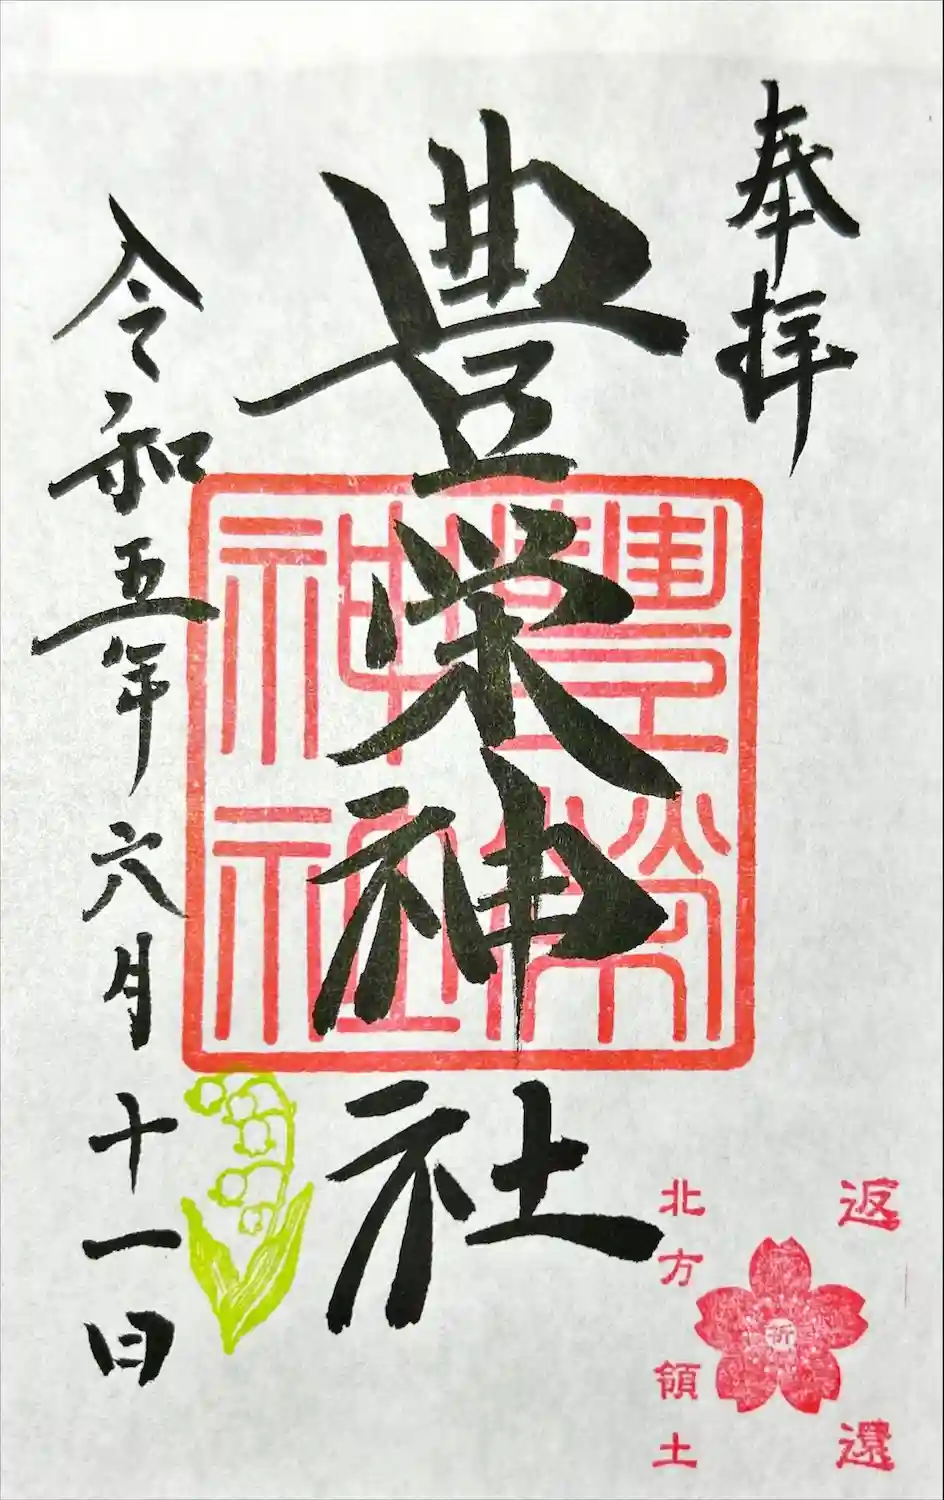 奉拝
豊栄神社
豊栄神社
令和五年六月十一日
祈
返還
北方領土